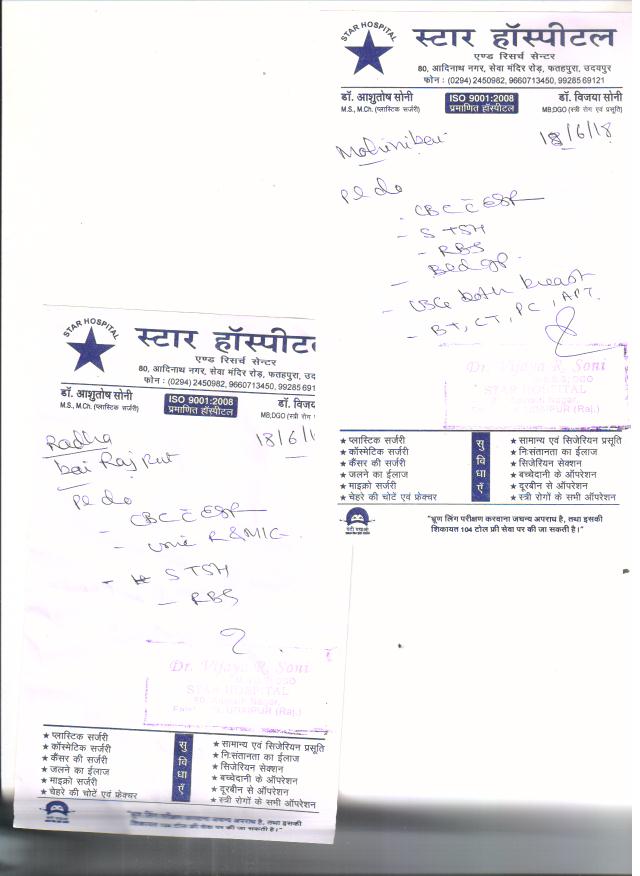 STAR HOSPITAL
स्टार हॉस्पीटल
एण्ड रिसर्च सेन्टर
80, आदिनाथ नगर, सेवा मंदिर रोड़, फतहपुरा, उदयपुर
फोन : (0294) 2450982, 9660713450, 9928569121
डॉ. आशुतोष सोनी ISO 9001:2008 डॉ. विजया सोनी
M.S., M.Ch. (प्लास्टिक सर्जरी) प्रमाणित हॉस्पीटल MB;DGO (स्त्री रोग एवं प्रसूति)
Mohinibai 18/6/18
Pl do
- CBC c̄ ESR
- S TSH
- RBS
- Bld gp.
- USG both breast
- BT, CT, PC, APT.
Dr. Vijaya R. Soni
STAR HOSPITAL
UDAIPUR (Raj.)
★ प्लास्टिक सर्जरी
★ कॉस्मेटिक सर्जरी
★ कैंसर की सर्जरी
★ जलने का ईलाज
★ माइक्रो सर्जरी
★ चेहरे की चोटें एवं फ्रेक्चर
सुविधाएँ
★ सामान्य एवं सिजेरियन प्रसूति
★ नि:संतानता का ईलाज
★ सिजेरियन सेक्शन
★ बच्चेदानी के ऑपरेशन
★ दूरबीन से ऑपरेशन
★ स्त्री रोगों के सभी ऑपरेशन
"भ्रूण लिंग परीक्षण करवाना जघन्य अपराध है, तथा इसकी
शिकायत 104 टोल फ्री सेवा पर की जा सकती है।"
STAR HOSPITAL
स्टार हॉस्पीट
एण्ड रिसर्च सेन्टर
80, आदिनाथ नगर, सेवा मंदिर रोड़, फतहपुरा, उदयपुर
फोन : (0294) 2450982, 9660713450, 99285691
डॉ. आशुतोष सोनी ISO 9001:2008 डॉ. विजय
M.S., M.Ch. (प्लास्टिक सर्जरी) प्रमाणित हॉस्पीटल MB;DGO (स्त्री रोग
Radha 18/6/1
bai Rajput
Pl do
- CBC c̄ ESR
- Urine R & MIC
- S TSH
- RBS
Dr. Vijaya R. Soni
STAR HOSPITAL
UDAIPUR (Raj.)
★ प्लास्टिक सर्जरी
★ कॉस्मेटिक सर्जरी
★ कैंसर की सर्जरी
★ जलने का ईलाज
★ माइक्रो सर्जरी
★ चेहरे की चोटें एवं फ्रेक्चर
सुविधाएँ
★ सामान्य एवं सिजेरियन प्रसूति
★ नि:संतानता का ईलाज
★ सिजेरियन सेक्शन
★ बच्चेदानी के ऑपरेशन
★ दूरबीन से ऑपरेशन
★ स्त्री रोगों के सभी ऑपरेशन
"भ्रूण लिंग परीक्षण करवाना जघन्य अपराध है, तथा इसकी
शिकायत 104 टोल फ्री सेवा पर की जा सकती है।"